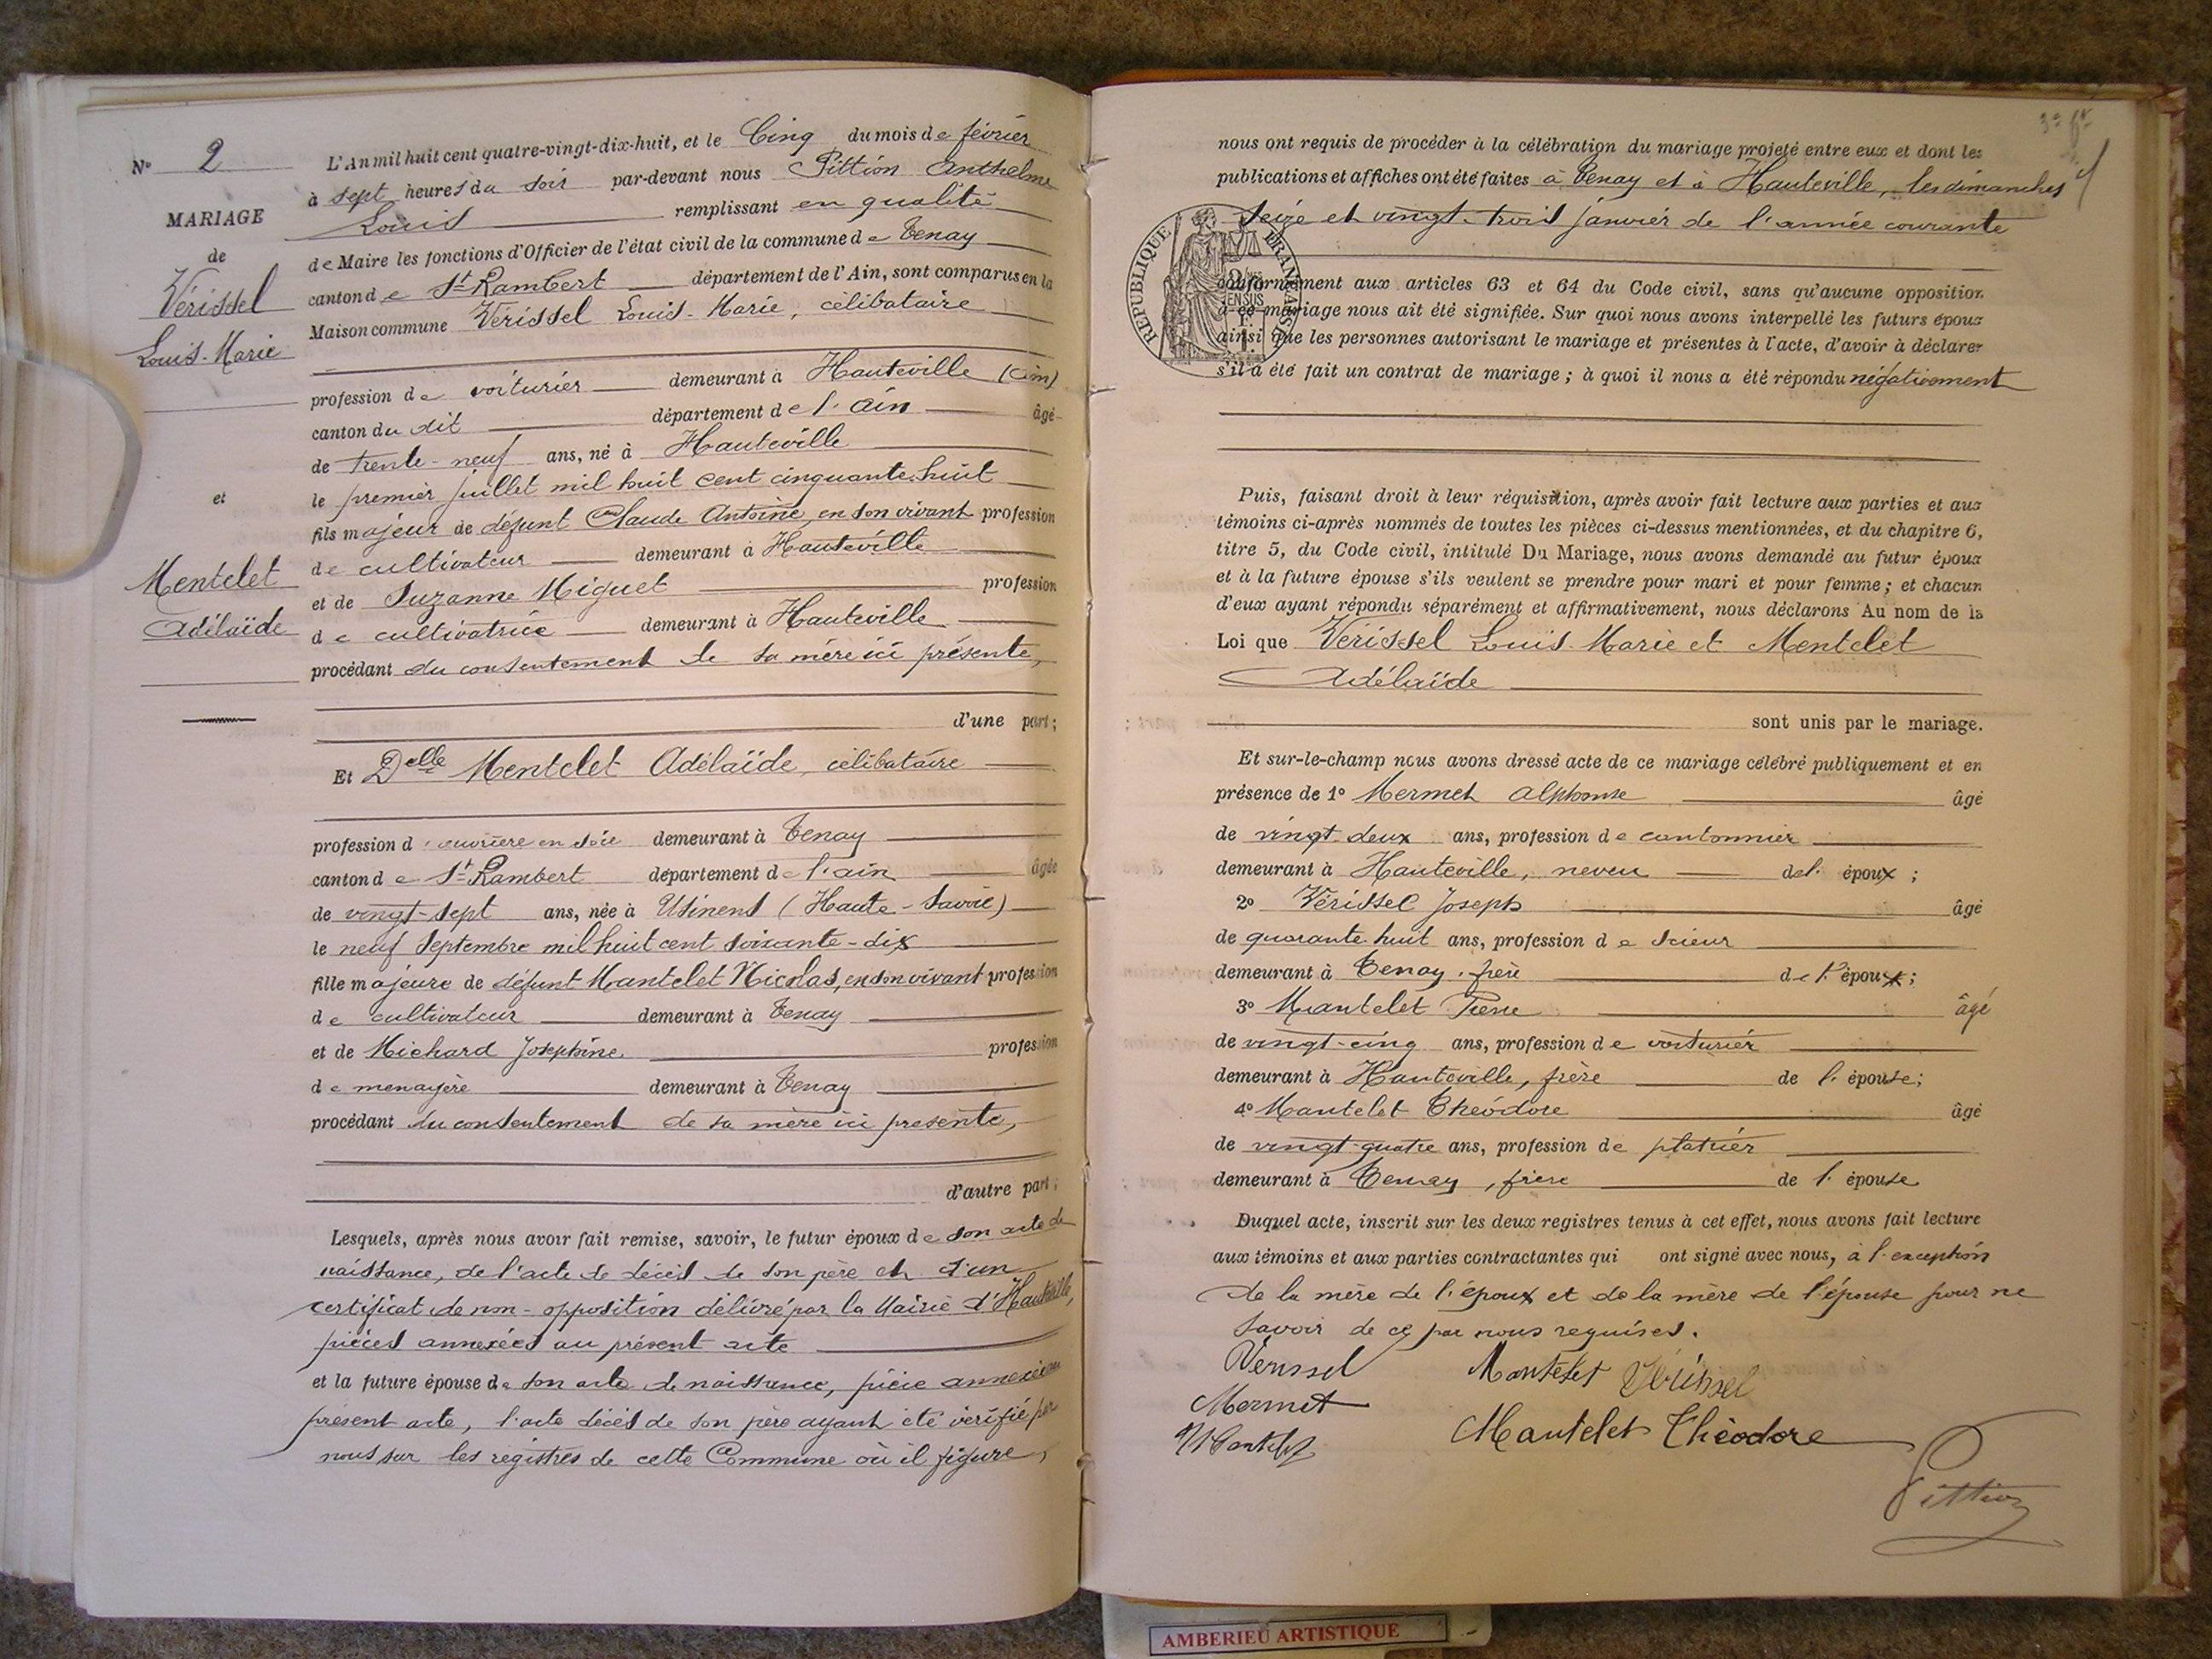 N° 2
MARIAGE
de
Vérissel
Louis-Marie
et
Mentelet
Adélaïde
L'An mil huit cent quatre-vingt-dix-huit, et le Cinq du mois de février
à sept heures du soir par-devant nous Pittion Anthelme
Louis remplissant en qualité
de Maire les fonctions d'Officier de l'état civil de la commune de Tenay
canton de St Rambert département de l'Ain, sont comparus en la
Maison commune Vérissel Louis-Marie, célibataire
profession de voiturier demeurant à Hauteville (Ain)
canton du dit département de l'Ain âgé
de trente-neuf ans, né à Hauteville
le premier juillet mil huit cent cinquante huit
fils majeur de défunt Claude Antoine, en son vivant profession
de cultivateur demeurant à Hauteville
et de Suzanne Miguet profession
de cultivatrice demeurant à Hauteville
procédant du consentement de sa mère ici présente,
d'une part;
Et Delle Mentelet Adélaïde, célibataire
profession d'ouvrière en soie demeurant à Tenay
canton de St Rambert département de l'Ain âgée
de vingt-sept ans, née à Usinens (Haute-Savoie)
le neuf Septembre mil huit cent soixante-dix
fille majeure de défunt Mantelet Nicolas, en son vivant profession
de cultivateur demeurant à Tenay
et de Michard Joséphine profession
de menagère demeurant à Tenay
procédant du consentement de sa mère ici présente,
d'autre part;
Lesquels, après nous avoir fait remise, savoir, le futur époux de son acte de
naissance, de l'acte de décès de son père et d'un
certificat de non-opposition délivré par la Mairie d'Hauteville,
pièces annexées au présent acte
et la future épouse de son acte de naissance, pièce annexée au
présent acte, l'acte décès de son père ayant été vérifié par
nous sur les registres de cette Commune où il figure,
nous ont requis de procéder à la célébration du mariage projeté entre eux et dont les
publications et affiches ont été faites à Tenay et à Hauteville, les dimanches
seize et vingt-trois janvier de l'année courante
RÉPUBLIQUE FRANÇAISE
conformément aux articles 63 et 64 du Code civil, sans qu'aucune opposition
à ce mariage nous ait été signifiée. Sur quoi nous avons interpellé les futurs époux
ainsi que les personnes autorisant le mariage et présentes à l'acte, d'avoir à déclarer
s'il a été fait un contrat de mariage; à quoi il nous a été répondu négativement
Puis, faisant droit à leur réquisition, après avoir fait lecture aux parties et aux
témoins ci-après nommés de toutes les pièces ci-dessus mentionnées, et du chapitre 6,
titre 5, du Code civil, intitulé Du Mariage, nous avons demandé au futur époux
et à la future épouse s'ils veulent se prendre pour mari et pour femme; et chacun
d'eux ayant répondu séparément et affirmativement, nous déclarons Au nom de la
Loi que Vérissel Louis-Marie et Mentelet
Adélaïde
sont unis par le mariage.
Et sur-le-champ nous avons dressé acte de ce mariage célébré publiquement et en
présence de 1° Mermet Alphonse âgé
de vingt-deux ans, profession de cantonnier
demeurant à Hauteville, neveu de l'époux;
2° Vérissel Joseph âgé
de quarante huit ans, profession de scieur
demeurant à Tenay, frère de l'époux;
3° Mantelet Pierre âgé
de vingt-cinq ans, profession de voiturier
demeurant à Hauteville, frère de l'épouse;
4° Mantelet Théodore âgé
de vingt-quatre ans, profession de platrier
demeurant à Tenay, frère de l'épouse
Duquel acte, inscrit sur les deux registres tenus à cet effet, nous avons fait lecture
aux témoins et aux parties contractantes qui ont signé avec nous, à l'exception
de la mère de l'époux et de la mère de l'épouse pour ne
savoir de ce par nous requises.
Verissel Mantelet Vérissel
Mermet
Mantelet Théodore
Mantelet
Pittion
AMBERIEU ARTISTIQUE